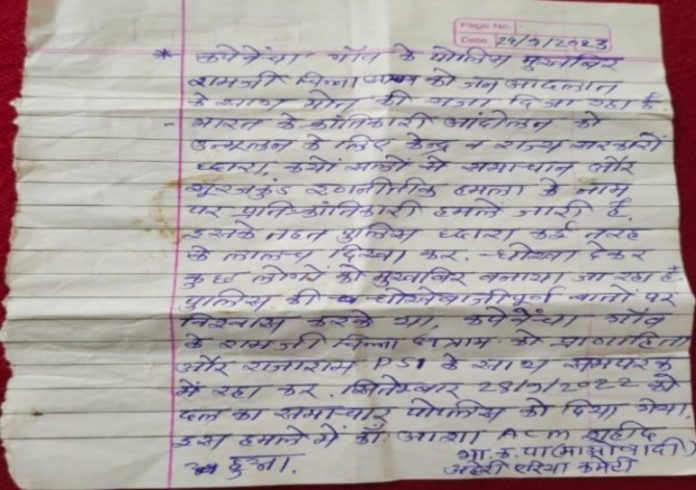 Page No.
Date 24/9/2023
* कपेवेंचा गाँव के पोलिस मुखबिर
रामजी चिन्ना को जन आदलात
के साथ मौत की सजा दिया रहा है.
- भारत के क्रांतिकारी आंदोलन को
उन्मूलन के लिए केन्द्र व राज्य सरकारों
द्धारा, कयों सलों से समाधान और
सूरजकुंड रणनीतिक हमला के नाम
पर प्रतिक्रांतिकारी हमले जारी है.
इसके तहत पुलिस द्धारा कई तरह
के लालच दिखा कर. धोखा देकर
कुछ लोगों को मुखबिर बनाया जा रहा है
पुलिस की धोखेबाजीपूर्ण बातों पर
विश्वास करके गाँव
के रामजी चिन्ना
और राजाराम PSI के साथ समपरक
में रहा कर. सितेम्बार 28/9/2022 को
दल का समाचार पोलिस को दिया गया.
इस हमले में कॉ. ACM शहीद
हुआ.
भा.क.पा(माओवादी)
अहेरी एरिया कमेटी